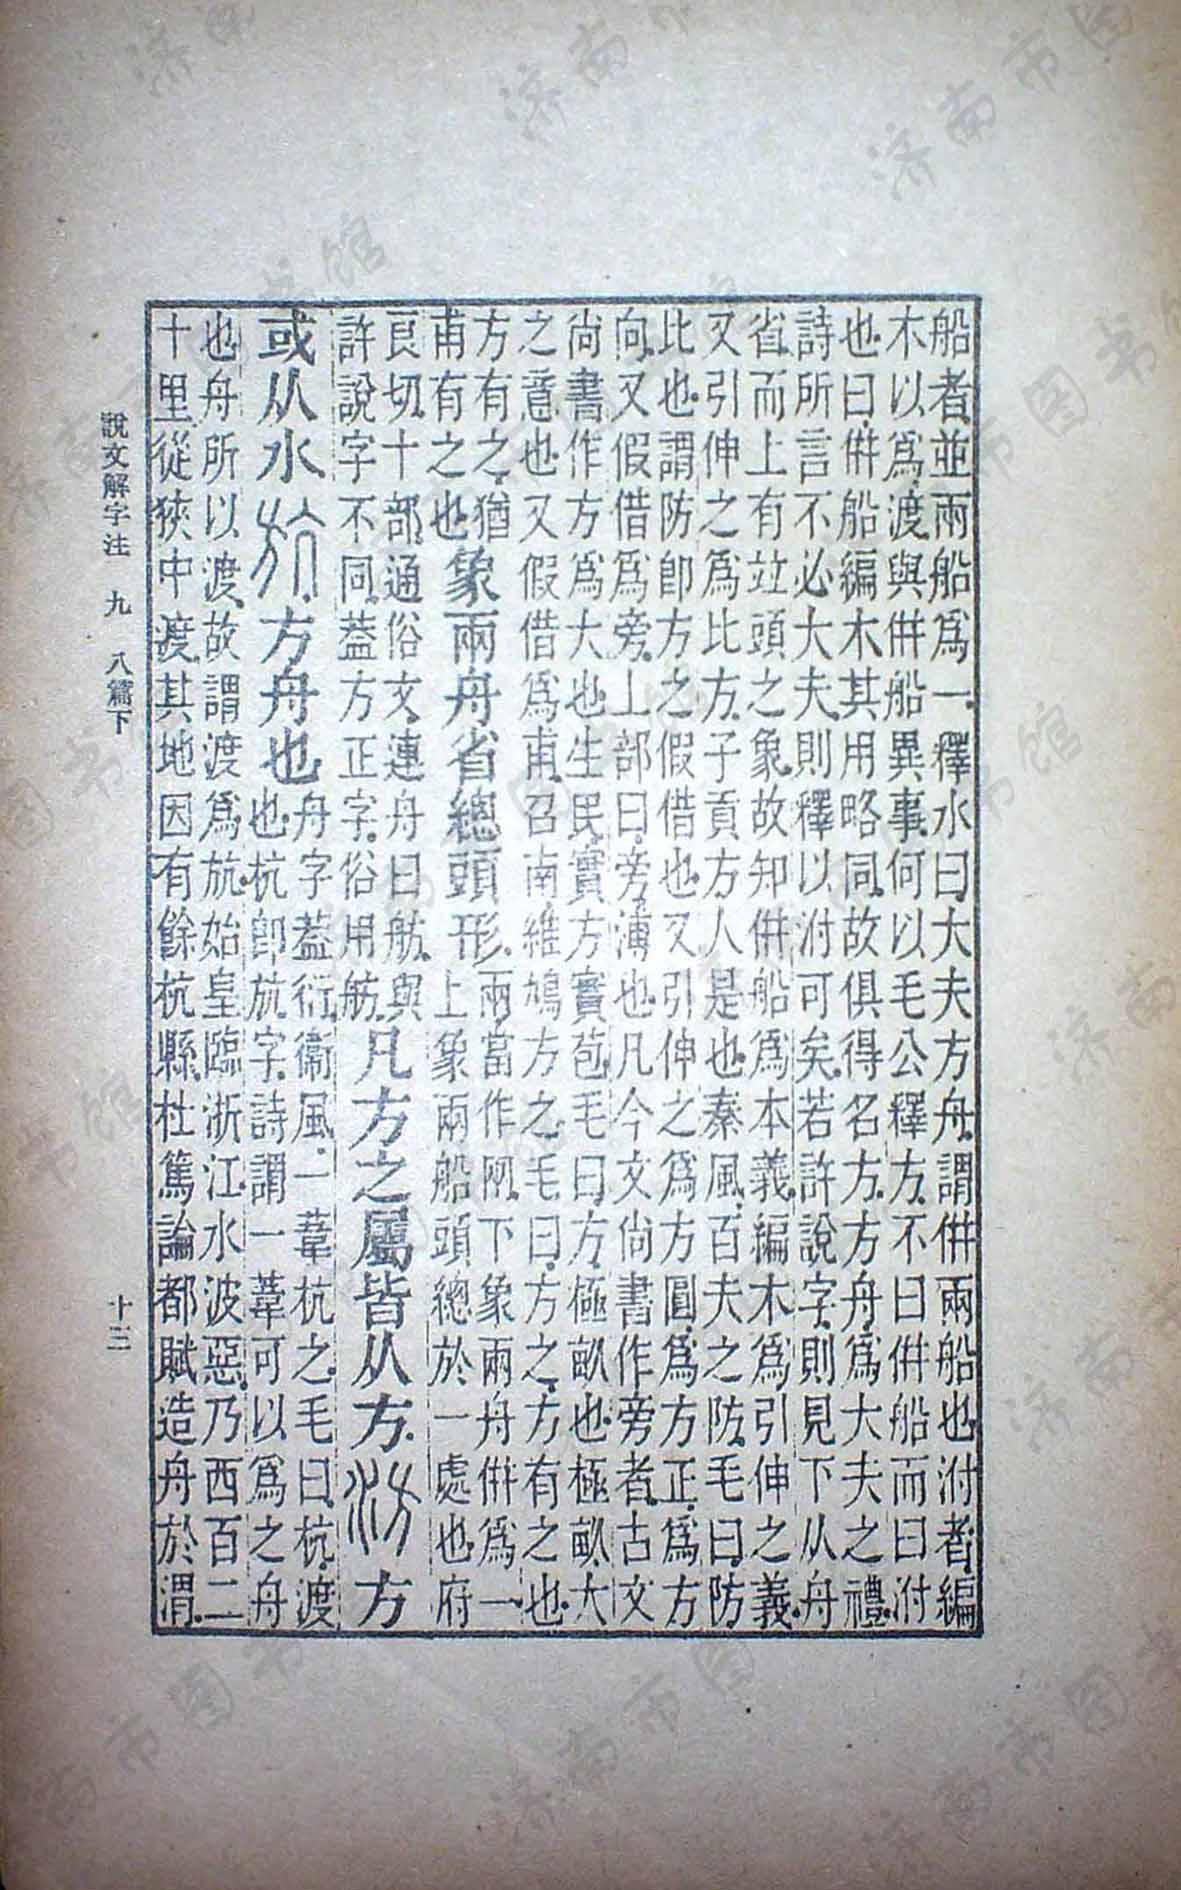 船者並兩船爲一釋水曰大夫方舟謂併兩船也泭者編
木以爲渡與併船異事何以毛公釋方不曰併船而曰泭
也曰併船編木其用略同故俱得名方方舟爲大夫之禮
詩所言不必大夫則釋以泭可矣若許說字則見下从舟
省而上有竝頭之象故知併船爲本義編木爲引伸之義
又引伸之爲比方子貢方人是也秦風百夫之防毛曰防
比也謂防卽方之假借也又引伸之爲方圓爲方正爲方
向又假借爲旁上部曰旁溥也凡今文尚書作旁者古文
尚書作方爲大也生民實方實苞毛曰方極畝也極畝大
之意也又假借爲甫召南維鳩方之毛曰方之方有之也
方有之猶
甫有之也
象兩舟省總頭形
兩當作㒳下象兩舟併爲一
上象兩船頭總於一處也府
良切十部通俗文連舟曰舫與
許說字不同蓋方正字俗用舫
凡方之屬皆从方汸方
或从水斻方舟也
舟字蓋衍衞風一葦杭之毛曰杭渡
也杭卽斻字詩謂一葦可以爲之舟
也舟所以渡故謂渡爲斻始皇臨浙江水波惡乃西百二
十里從狹中渡其地因有餘杭縣杜篤論都賦造舟於渭
說文解字注 九 八篇下 十三
济南市图书馆